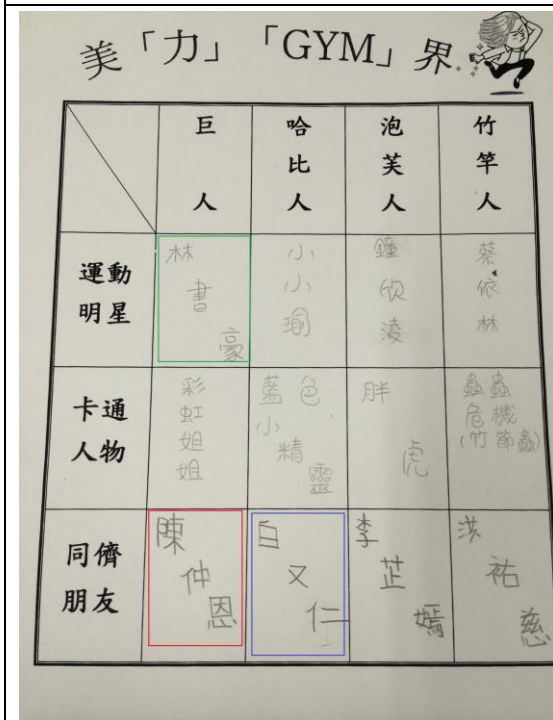 美「力」「GYM」界
巨人 哈比人 泡芙人 竹竿人
運動明星 林書豪 小小瑜 鐘欣凌 蔡依林
卡通人物 彩虹姐姐 藍色小精靈 胖虎 蟲蟲危機(竹節蟲)
同儕朋友 陳仲恩 白又仁 李芷嫣 洪祐慈